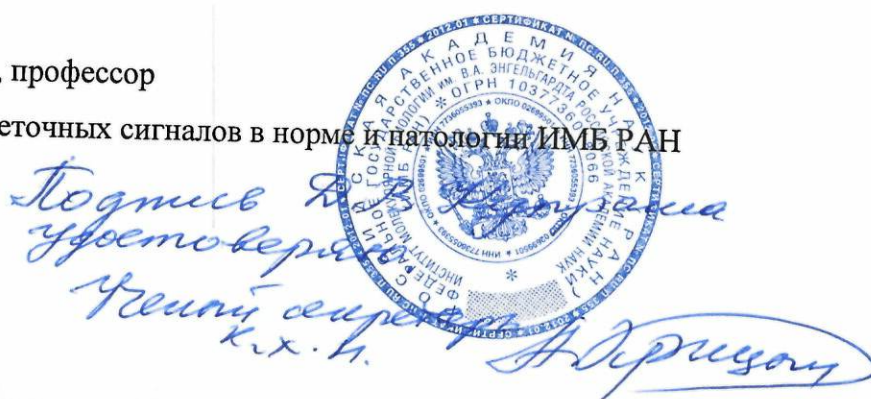 , профессор
еточных сигналов в норме и патологии ИМБ РАН
Подпись Д В Купраша
удостоверяю
Ученый секретарь
к.х.н.
РОССИЙСКАЯ АКАДЕМИЯ НАУК
ФЕДЕРАЛЬНОЕ ГОСУДАРСТВЕННОЕ БЮДЖЕТНОЕ УЧРЕЖДЕНИЕ НАУКИ
ИНСТИТУТ МОЛЕКУЛЯРНОЙ БИОЛОГИИ ИМ. В.А. ЭНГЕЛЬГАРДТА РОССИЙСКОЙ АКАДЕМИИ НАУК
(ИМБ РАН) * ОГРН